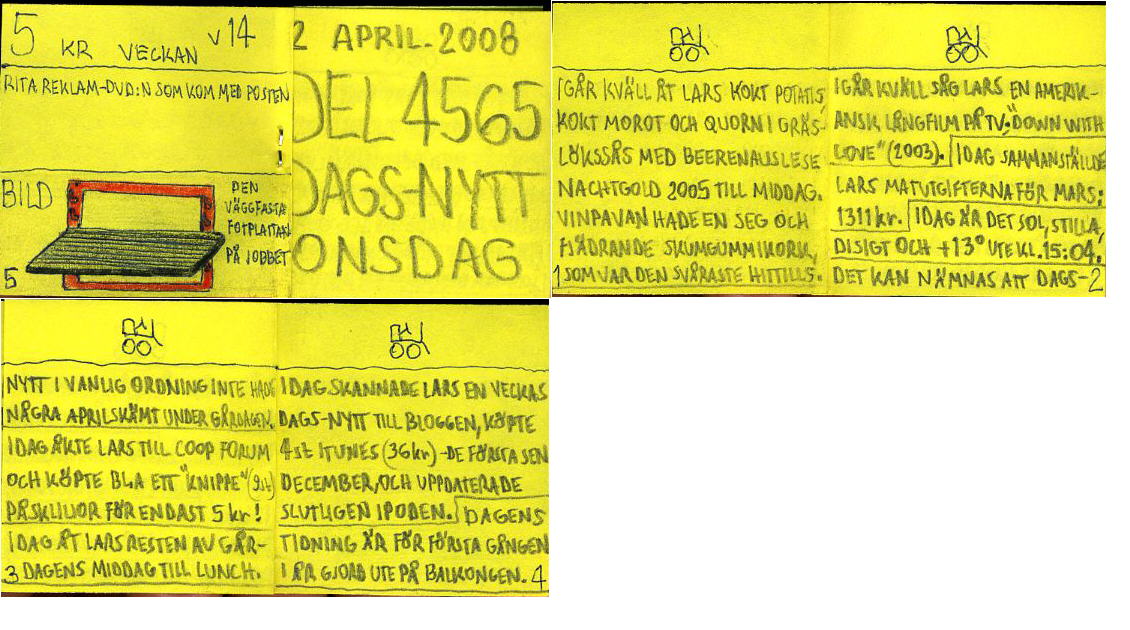 5 KR VECKAN V14
RITA REKLAM-DVD:N SOM KOM MED POSTEN
BILD
DEN
VÄGGFASTA
FOTPLATTAN
PÅ JOBBET
5
2 APRIL. 2008
DEL 4565
DAGS-NYTT
ONSDAG
IGÅR KVÄLL ÅT LARS KOKT POTATIS,
KOKT MOROT OCH QUORN I GRÄS-
LÖKSSÅS MED BEERENAUSLESE
NACHTGOLD 2005 TILL MIDDAG.
VINPAVAN HADE EN SEG OCH
FJÄDRANDE SKUMGUMMIKORK,
1 SOM VAR DEN SVÅRASTE HITTILLS.
IGÅR KVÄLL SÅG LARS EN AMERIK-
ANSK LÅNGFILM PÅ TV: "DOWN WITH
LOVE" (2003). IDAG SAMMANSTÄLLDE
LARS MATUTGIFTERNA FÖR MARS:
1311 kr. IDAG ÄR DET SOL, STILLA,
DISIGT OCH +13° UTE KL. 15:04.
DET KAN NÄMNAS ATT DAGS- 2
NYTT I VANLIG ORDNING INTE HADE
NÅGRA APRILSKÄMT UNDER GÅRDAGEN.
IDAG ÅKTE LARS TILL COOP FORUM
OCH KÖPTE BLA ETT "KNIPPE" (9st)
PÅSKLILJOR FÖR ENDAST 5 kr!
IDAG ÅT LARS RESTEN AV GÅR-
3 DAGENS MIDDAG TILL LUNCH.
IDAG SKANNADE LARS EN VECKAS
DAGS-NYTT TILL BLOGGEN, KÖPTE
4st ITUNES (36kr) -DE FÖRSTA SEN
DECEMBER, OCH UPPDATERADE
SLUTLIGEN IPODEN. DAGENS
TIDNING ÄR FÖR FÖRSTA GÅNGEN
I ÅR GJORD UTE PÅ BALKONGEN. 4